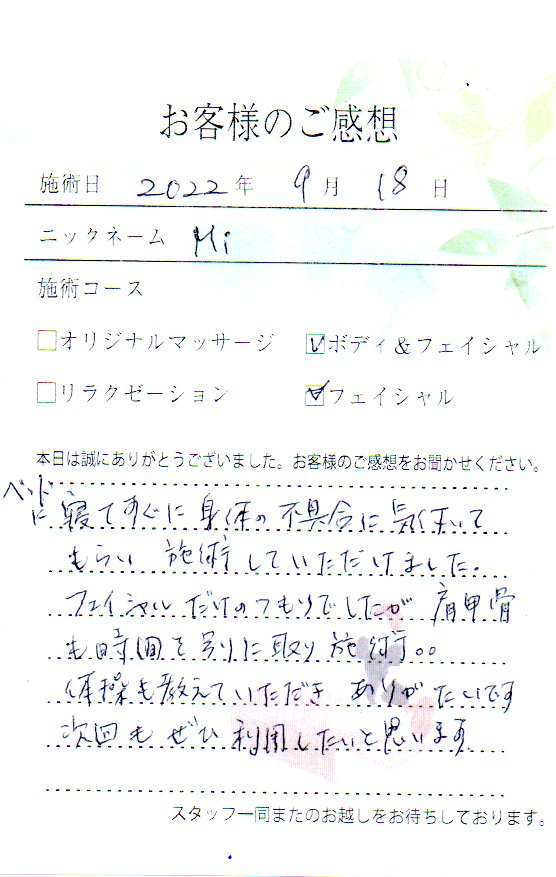 お客様のご感想
施術日 2022年 9月 18日
ニックネーム Mi
施術コース
オリジナルマッサージ ボディ&フェイシャル
リラクゼーション フェイシャル
本日は誠にありがとうございました。お客様のご感想をお聞かせください。
ベッドに寝てすぐに身体の不具合に気付いて
もらい 施術していただけました。
フェイシャルだけのつもりでしたが 肩甲骨
も時間を別に取り施術。。
体操も教えていただき ありがたいです
次回もぜひ利用したいと思います
スタッフ一同またのお越しをお待ちしております。